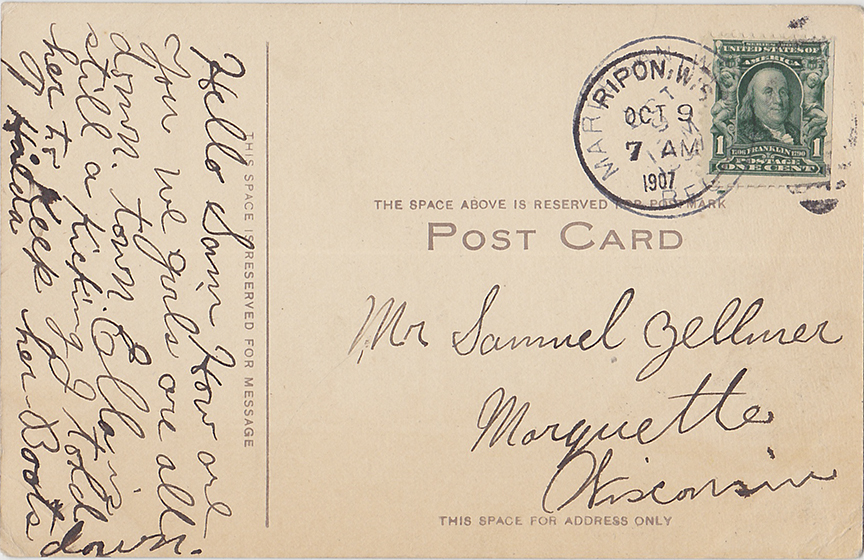 Hello Sam How are
you we girls are all
down town Ella is
still a kicking I told
her to keep her Boots
down.
Hilda
THIS SPACE IS RESERVED FOR MESSAGE
SERIES 1902
UNITED STATES OF
AMERICA
1 1706 FRANKLIN 1790 1
POSTAGE
ONE CENT
RIPON, WIS
OCT 9
7 AM
1907
MAR
REC
THE SPACE ABOVE IS RESERVED FOR POSTMARK
POST CARD
Mr Samuel Zellmer
Marquette
Wisconsin
THIS SPACE FOR ADDRESS ONLY